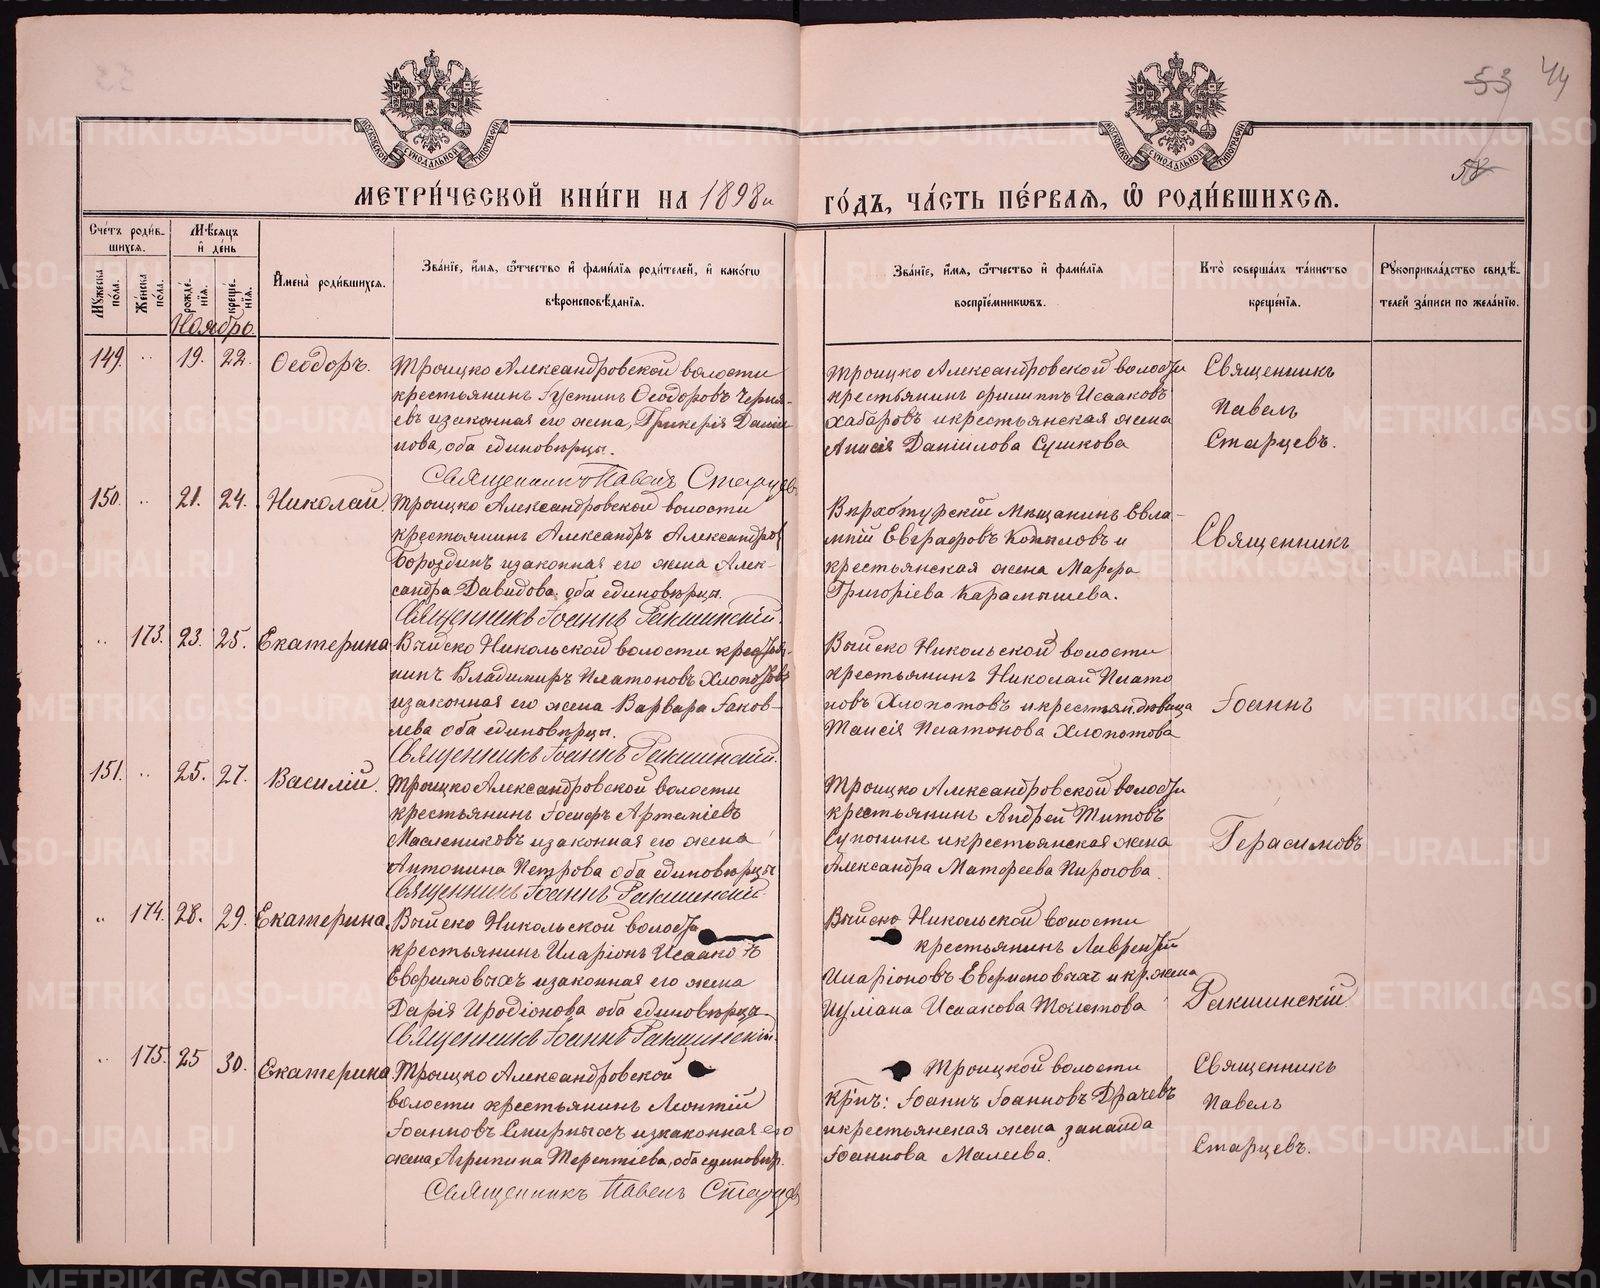 53 44
58
МЕТРИЧЕСКОЙ КНИГИ НА 1898й ГОДЪ, ЧАСТЬ ПЕРВАЯ, Ѡ РОДИВШИХСЯ.
Счетъ родившихся.
Мужеска пола.
Женска пола.
Мѣсяцъ и день
рожденія.
крещенія.
Имена родившихся.
Званіе, имя, отчество и фамилія родителей, и какогѡ вѣроисповѣданія.
Званіе, имя, отчество и фамилія воспріемникωвъ.
Кто совершалъ таинство крещенія.
Рукоприкладство свидѣтелей записи по желанію.
Ноябрь.
149. „ 19. 22. Ѳеодоръ.
Троицко Александровской волости
крестьянинъ Іустинъ Ѳеодоровъ Черня-
евъ изаконная его жена, Гликерія Дании-
лова, оба единовѣрцы.
Священникъ Павелъ Старцевъ
Троицко Александровской волости
крестьянинъ Филиппъ Исааковъ
Хабаровъ и крестьянская жена
Анисія Даніилова Сушкова
Священникъ
Павелъ
Старцевъ.
150. „ 21. 24. Николай.
Троицко Александровской волости
крестьянинъ Александръ Александровъ
Бороздинъ изаконная его жена Алек-
сандра Давидова, оба единовѣрцы.
Священникъ Іоаннъ Ракшинскій.
Верхотурскій Мѣщанинъ Евла-
мпій Евграфовъ Копыловъ и
крестьянская жена Марфа
Григоріева Карамышева.
Священникъ
„ 173. 23. 25. Екатерина
Выйско Никольской волости крестья-
нинъ Владимиръ Платоновъ Хлопотовъ
изаконная его жена Варвара Іаков-
лева оба единовѣрцы.
Священникъ Іоаннъ Ракшинскій.
Выйско Никольской волости
крестьянинъ Николай Плато
новъ Хлопотовъ и крестьян. дѣвица
Таисія Платонова Хлопотова
Іоаннъ
151. „ 25. 27. Василій.
Троицко Александровской волости
крестьянинъ Іосифъ Артеміевъ
Маслениковъ изаконная его жена
Антонина Петрова оба единовѣрцы
Священникъ Іоаннъ Ракшинскій.
Троицко Александровской волости
крестьянинъ Андрей Титовъ
Супонинъ и крестьянская жена
Александра Матфеева Пирогова.
Герасимовъ
„ 174. 28. 29. Екатерина.
Выйско Никольской волости
крестьянинъ Иларіонъ Исааковъ
Евфимовыхъ изаконная его жена
Дарія Иродіонова оба единовѣрца
Священникъ Іоаннъ Ракшинскій
Выйско Никольской волости
крестьянинъ Лаврентій
Иларіоновъ Евфимовыхъ и кр. жена
Іуліана Исаакова Толстова
Ракшинскій
„ 175. 25 30. Екатерина
Троицко Александровской
волости крестьянинъ Леонтій
Іоанновъ Смирныхъ изаконная его
жена, Агрипина Терентіева, оба единовѣр.
Священникъ Павелъ Старцевъ
Троицкой волости
Кр'нъ: Іоаннъ Іоанновъ Драчевъ
и крестьянская жена Зинаида
Іоаннова Малеева.
Священникъ
Павелъ
Старцевъ.
METRIKI.GASO-URAL.RU